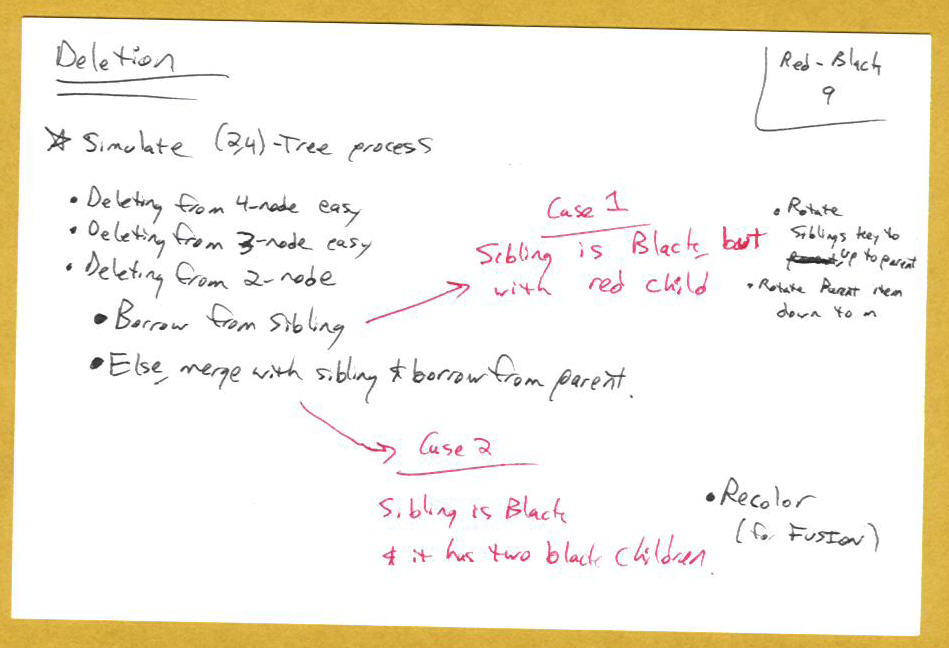 Deletion
Red-Black
9
☆ Simulate (2,4)-Tree process
• Deleting from 4-node easy
• Deleting from 3-node easy
• Deleting from 2-node
• Borrow from Sibling
• Else, merge with sibling & borrow from parent.
Case 1
Sibling is Black, but
with red child
• Rotate
Siblings key to
up to parent
• Rotate Parent item
down to n
Case 2
Sibling is Black
& it has two black children.
• Recolor
(for FUSION)